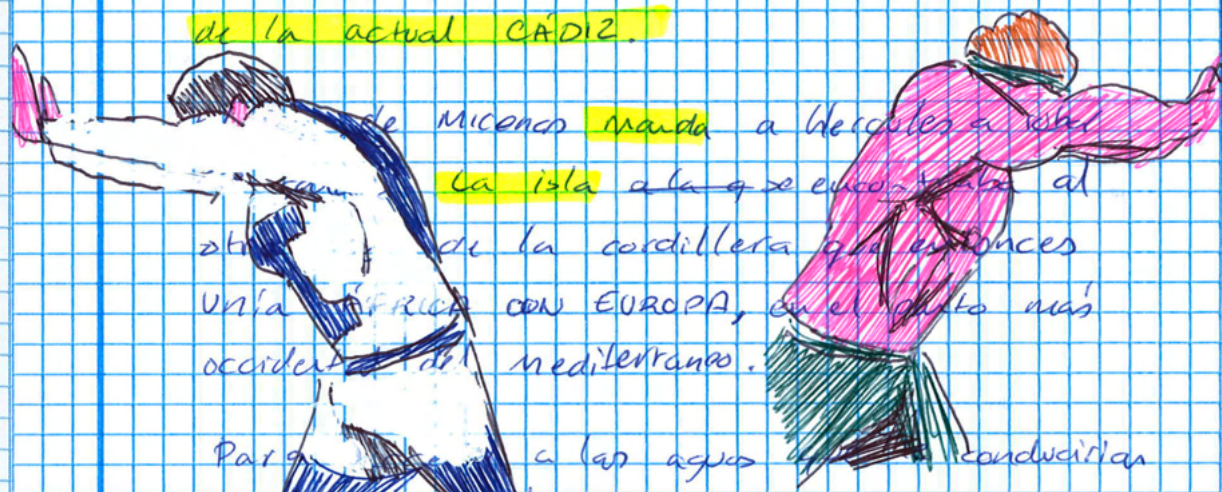 de la actual CÁDIZ.
de Micenas manda a Hercules a
La isla a la que se encontraba al
de la cordillera que entonces
unía ÁFRICA CON EUROPA, en el punto más
occidental del Mediterraneo.
Para a las aguas conducirian